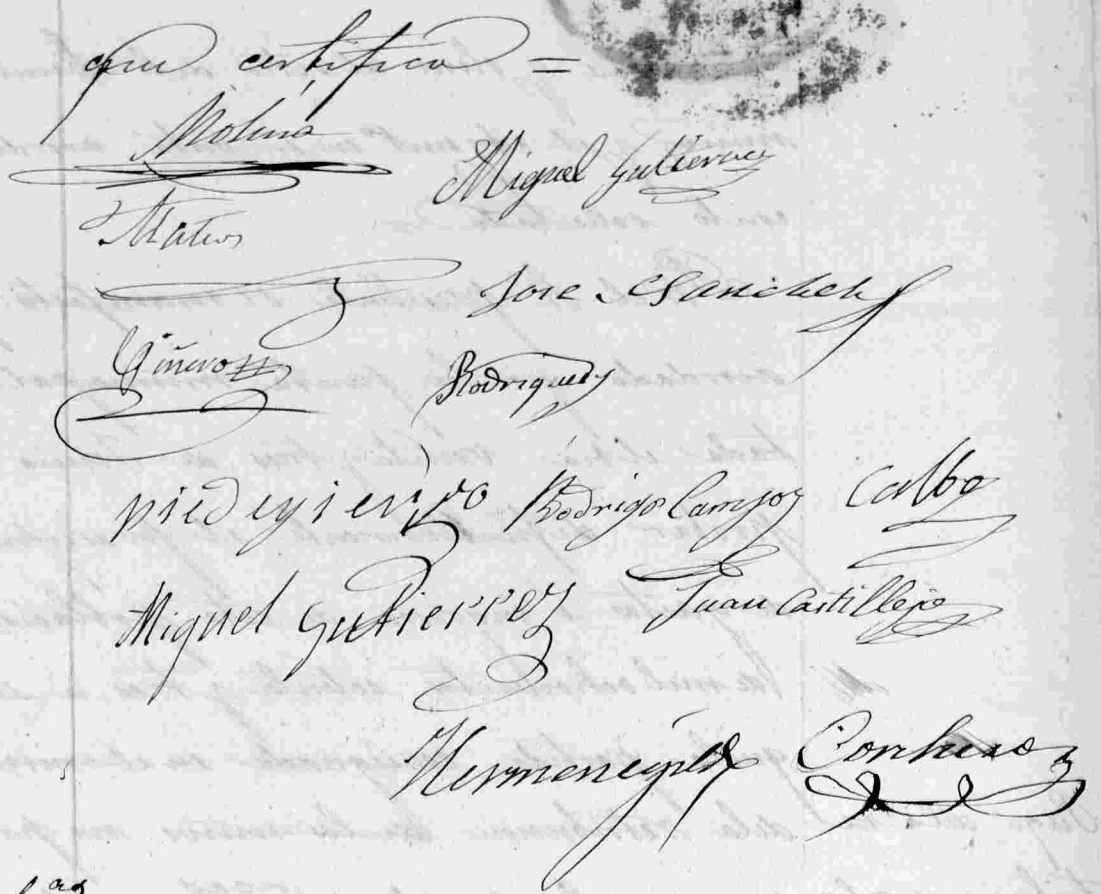 que certifico =
Molina
Miguel Gutierrez
Mateos
Jose Sanchez
Giñero
Rodriguez
piedeyierro Rodrigo Campos Calbo
Miguel Gutierrez Juan Castillejo
Hermenegildo